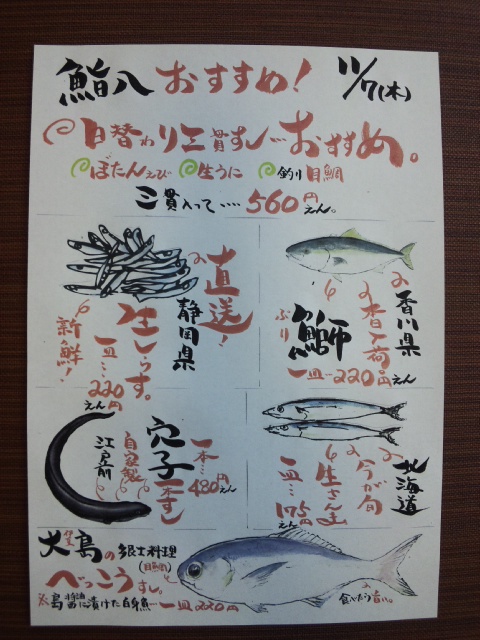 鮨八 おすすめ!
11/7(木)
日替わり三貫すし…おすすめ。
ぼたんえび 生うに 釣り目鯛
三貫入って‥‥560円えん。
直送!
静岡県
生しらす。
一皿…220円えん
新鮮!
香川県
今日入荷
鰤
ぶり
一皿-220円えん
穴子
一本すし
一本…480円えん
自家製
江戸前
北海道
今が旬
生さんま
一皿…175円えん
大島の郷土料理
(目鯛)
べっこうすし。
島醤油に漬けた白身魚…一皿220円
食べたら旨い。